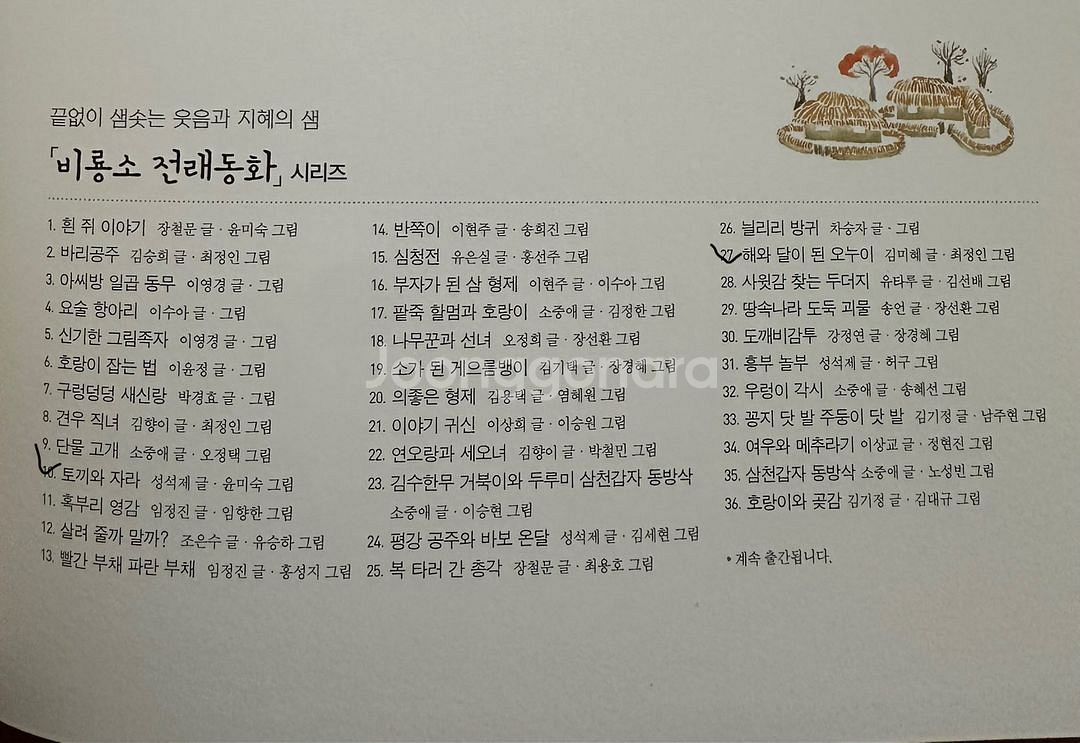 끝없이 샘솟는 웃음과 지혜의 샘
「비룡소 전래동화」 시리즈
1. 흰 쥐 이야기 장철문 글 · 윤미숙 그림
2. 바리공주 김승희 글 · 최정인 그림
3. 아씨방 일곱 동무 이영경 글 · 그림
4. 요술 항아리 이수아 글 · 그림
5. 신기한 그림족자 이영경 글 · 그림
6. 호랑이 잡는 법 이윤정 글 · 그림
7. 구렁덩덩 새신랑 박경효 글 · 그림
8. 견우 직녀 김향이 글 · 최정인 그림
9. 단물 고개 소중애 글 · 오정택 그림
10. 토끼와 자라 성석제 글 · 윤미숙 그림
11. 혹부리 영감 임정진 글 · 임향한 그림
12. 살려 줄까 말까? 조은수 글 · 유승하 그림
13. 빨간 부채 파란 부채 임정진 글 · 홍성지 그림
14. 반쪽이 이현주 글 · 송희진 그림
15. 심청전 유은실 글 · 홍선주 그림
16. 부자가 된 삼 형제 이현주 글 · 이수아 그림
17. 팥죽 할멈과 호랑이 소중애 글 · 김정한 그림
18. 나무꾼과 선녀 오정희 글 · 장선환 그림
19. 소가 된 게으름뱅이 김기택 글 · 장경혜 그림
20. 의좋은 형제 김용택 글 · 염혜원 그림
21. 이야기 귀신 이상희 글 · 이승원 그림
22. 연오랑과 세오녀 김향이 글 · 박철민 그림
23. 김수한무 거북이와 두루미 삼천갑자 동방삭
소중애 글 · 이승현 그림
24. 평강 공주와 바보 온달 성석제 글 · 김세현 그림
25. 복 타러 간 총각 장철문 글 · 최용호 그림
26. 닐리리 방귀 차승자 글 · 그림
27. 해와 달이 된 오누이 김미혜 글 · 최정인 그림
28. 사윗감 찾는 두더지 유타루 글 · 김선배 그림
29. 땅속나라 도둑 괴물 송언 글 · 장선환 그림
30. 도깨비감투 강정연 글 · 장경혜 그림
31. 흥부 놀부 성석제 글 · 허구 그림
32. 우렁이 각시 소중애 글 · 송혜선 그림
33. 꽁지 닷 발 주둥이 닷 발 김기정 글 · 남주현 그림
34. 여우와 메추라기 이상교 글 · 정현진 그림
35. 삼천갑자 동방삭 소중애 글 · 노성빈 그림
36. 호랑이와 곶감 김기정 글 · 김대규 그림
* 계속 출간됩니다.
Joonggonara